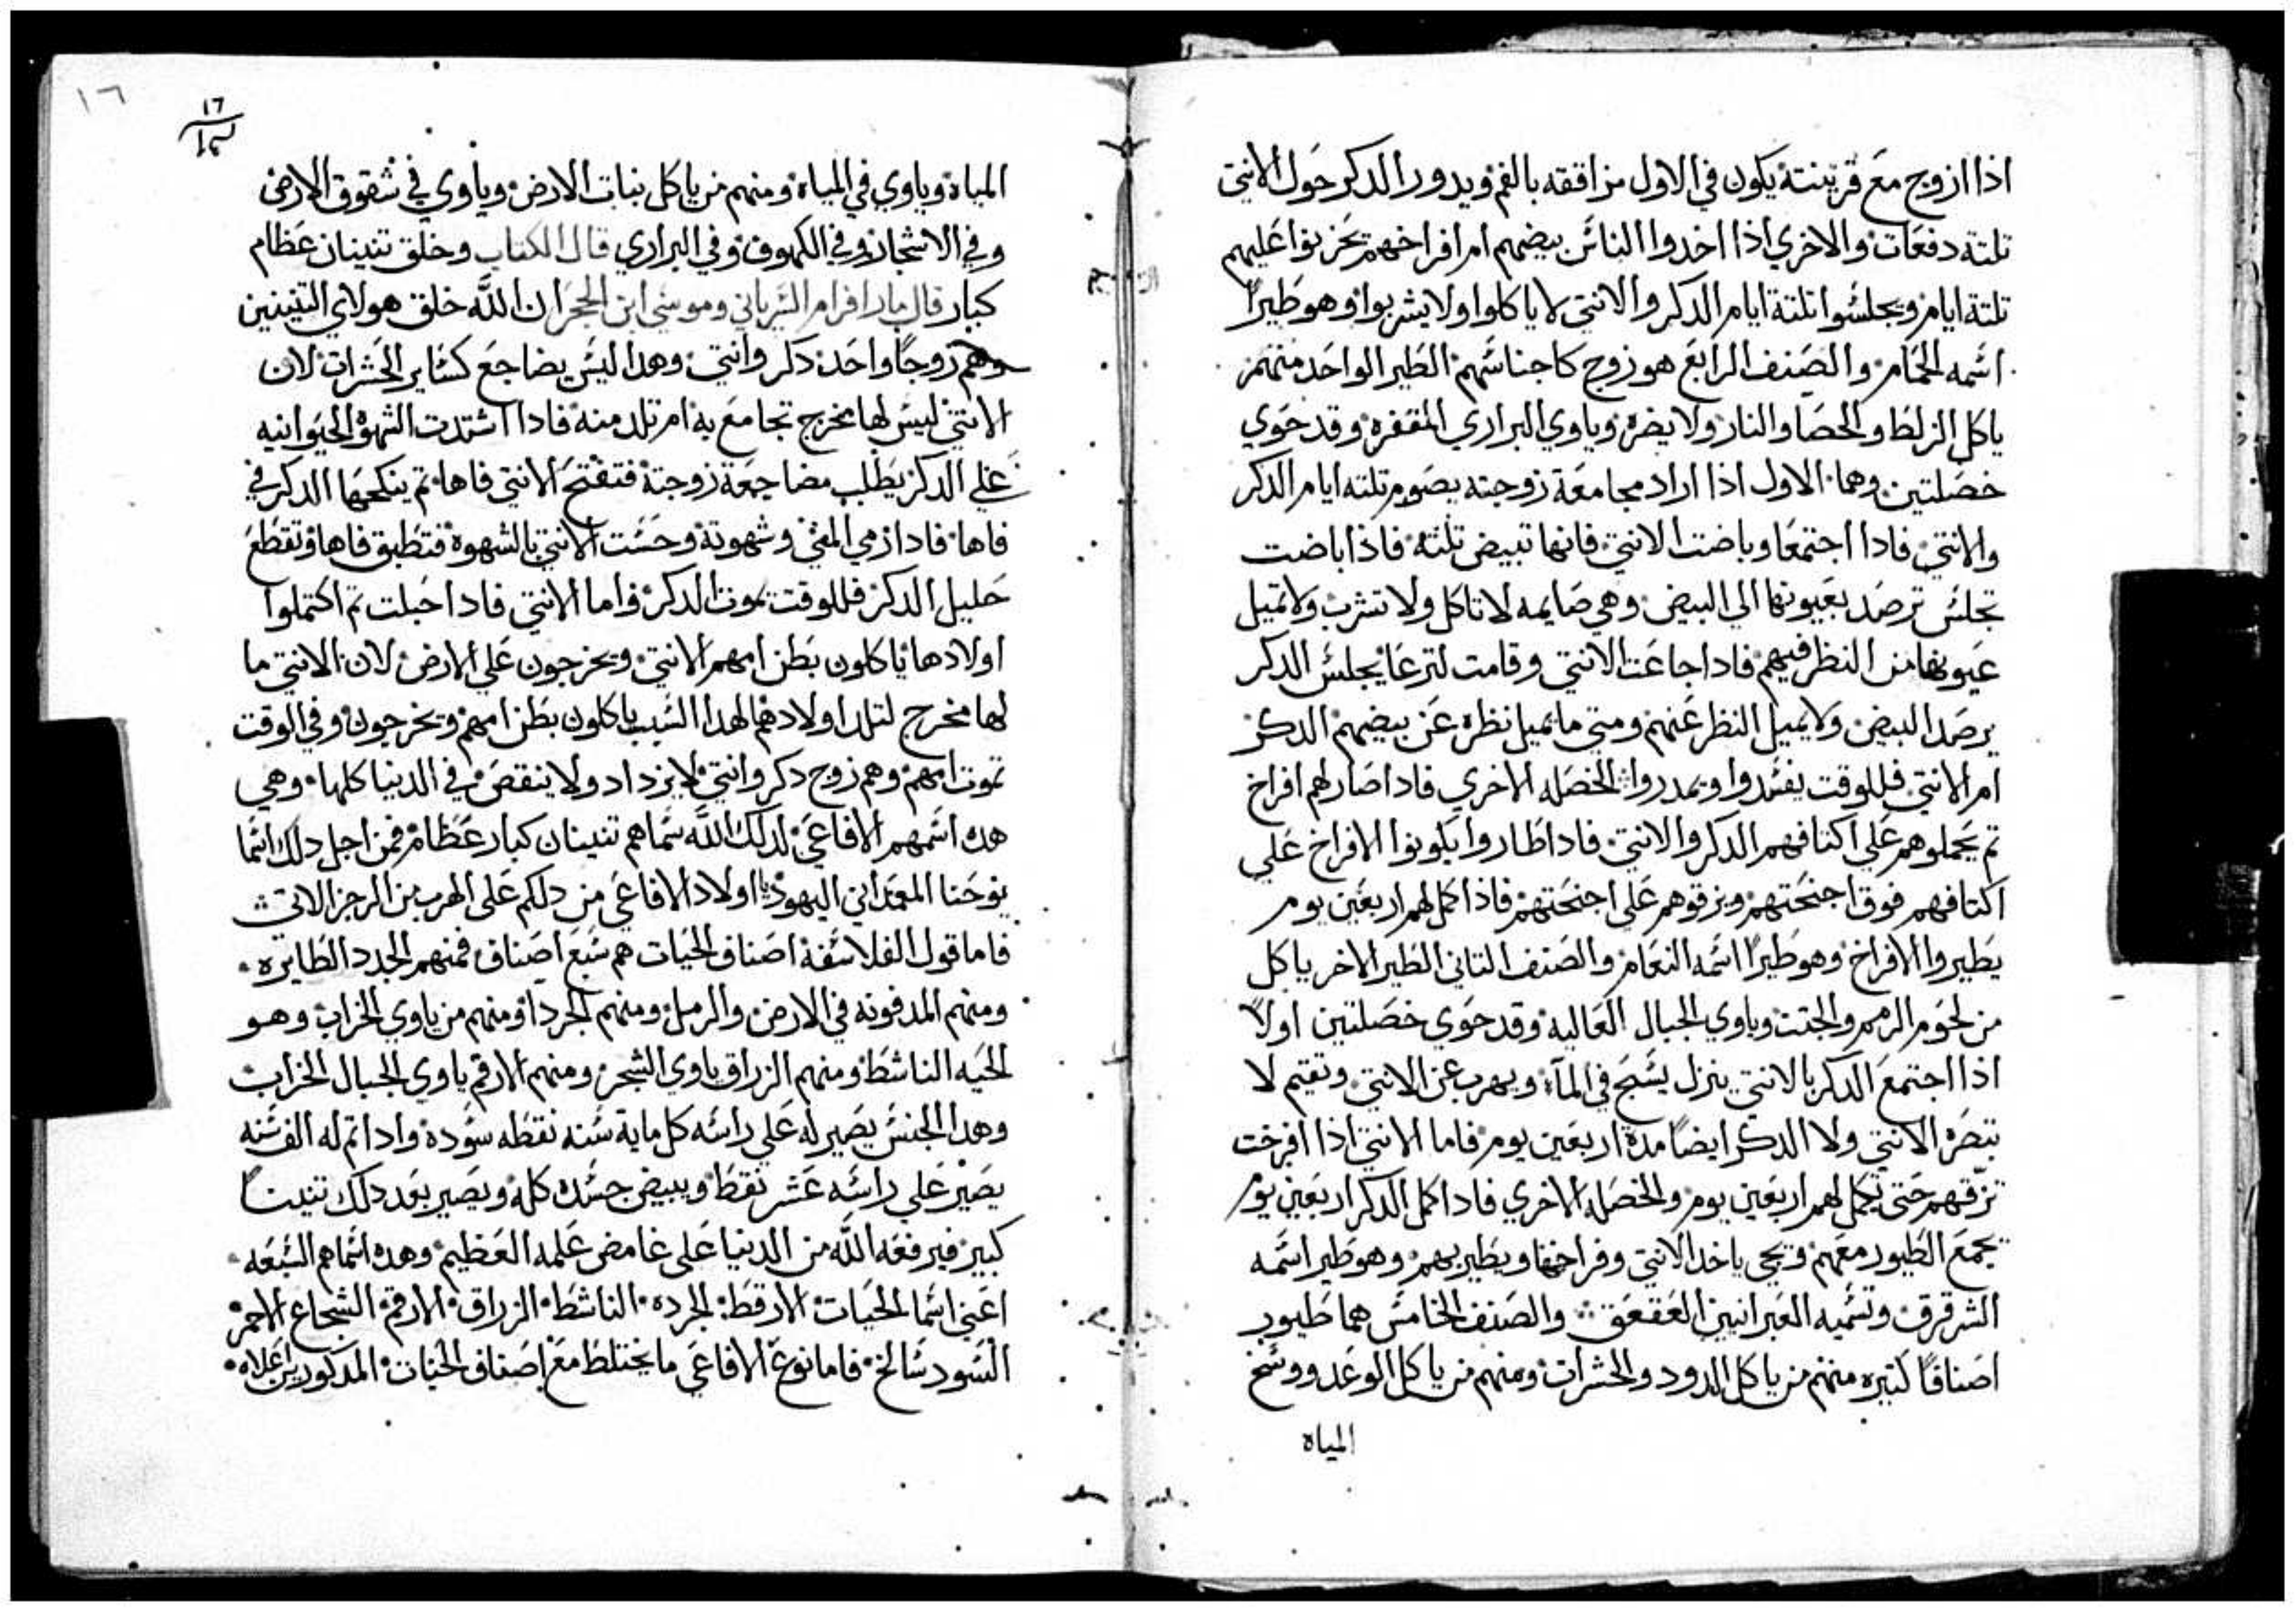 اذا ازوج مع قرينته يكون في الاول مزاققه بالفم ويدور الدكر حول الانتي
تلتة دفعات والاخري اذا اخدوا الناس بيضهم ام افراخهم تحزنوا عليهم
تلتة ايام ويجلسوا تلتة ايام الدكر والانتي لا ياكلوا ولا يشربوا وهو طيرا
اسمه الحمام والصنف الرابع هو زوج كاجناسهم الطير الواحد منهم
ياكل الزلط والحصا والنار ولا يضره وياوي البراري المقفره وقد حوي
خصلتين وهما الاول اذا اراد مجامعة زوجته يصوم تلته ايام الدكر
والانتي فادا اجتمعا وباضت الانتي فانها تبيض تلته فاذا باضت
تجلس ترصد بعيونها الي البيض وهي صايمه لا تاكل ولا تشرب ولا تميل
عيونها من النظر فيهم فادا جاعت الانتي وقامت لترعا يجلس الدكر
يرصد البيض ولا يميل النظر عنهم ومتي ما يميل نظره عن بيضهم الدكر
ام الانتي فللوقت يفسدوا ويمدروا والخصله الاخري فادا صار لهم افراخ
تم يحملوهم علي اكتافهم الدكر والانتي فادا طاروا يكونوا الافراخ علي
اكتافهم فوق اجنحتهم ويزقوهم علي اجنحتهم فاذا كمل لهم اربعين يوم
يطيروا الافراخ وهو طيرا اسمه النعام والصنف التاني الطير الاخر ياكل
من لحوم الرمم والجتت وياوي الجبال العاليه وقد حوي خصلتين اولا
اذا اجتمع الدكر بالانتي ينزل يسبح في الماء ويهرب عن الانتي وتقيم لا
تنضره الانتي ولا الدكر ايضا مدة اربعين يوم فاما الانتي اذا افرخت
تزقهم حتي تكمل لهم اربعين يوم والخصله الاخري فادا كمل الدكر اربعين يوم
يجمع الطيور معهم ويجي ياخد الانتي وفراخها ويطير بهم وهو طير اسمه
الشرقرق وتسميه العبرانيين العقعق والصنف الخامس هما طيور
اصنافا كتيره منهم من ياكل الدود والحشرات ومنهم من ياكل الوغد ووسخ
المياه
١٦
١٦
المياه وياوي في المياه ومنهم من ياكل نبات الارض وياوي في شقوق الارض
وفي الاشجار وفي الكهوف وفي البراري قال الكتاب وخلق تنينان عظام
كبار قال مار افرام السرياني وموسي ابن الحجر ان الله خلق هولاي التنينين
وهم زوجا واحد دكر وانتي وهدا ليس يضاجع كساير الحشرات لان
الانتي ليس لها مخرج تجامع به ام تلد منه فادا اشتدت الشهوة الحيوانيه
علي الدكر يطلب مضاجعة زوجتة فتفتح الانتي فاها تم ينكحها الدكر في
فاها فادا زمي المني وشهوتة وحست الانتي بالشهوة فتطبق فاها وتقطع
حليل الدكر فللوقت يموت الدكر واما الانتي فادا حبلت تم اكتملوا
اولادها ياكلون بطن امهم الانتي ويخرجون علي الارض لان الانتي ما
لها مخرج لتلد اولادها لهدا السبب ياكلون بطن امهم ويخرجون وفي الوقت
تموت امهم وهم زوج دكر وانتي لا يزداد ولا ينقص في الدنيا كلها وهي
هده اسمهم الافاعي لدلك الله سماهم تنينان كبار عظام فمن اجل دلك اسما
يوحنا المعمداني اليهود يا اولاد الافاعي من دلكم علي الهرب من الرجز الاتي
فاما قول الفلاسفة اصناف الحيات هم سبع اصناف فمنهم الجدد الطايره
ومنهم المدفونه في الارض والرمل ومنهم الجردا ومنهم من ياوي الخراب وهو
الحيه الناشط ومنهم الزراق ياوي الشجر ومنهم الارقم ياوي الجبال الخراب
وهدا الجنس يصير له علي راسه كل ماية سنه نقطه سوده وادا تم له الف سنه
يصير علي راسه عشر نقط ويبيض جسده كله ويصير بعد دلك تنينا
كبير فيرفعه الله من الدنيا علي غامض علمه العظيم وهده اسماهم السبعه
اعني اسما الحيات الارقط الجرده الناشط الزراق الارقم الشجاع الاحمر
السود سالخ فاما نوع الافاعي ما يختلط مع اصناف الحيات المدكورين اعلاه